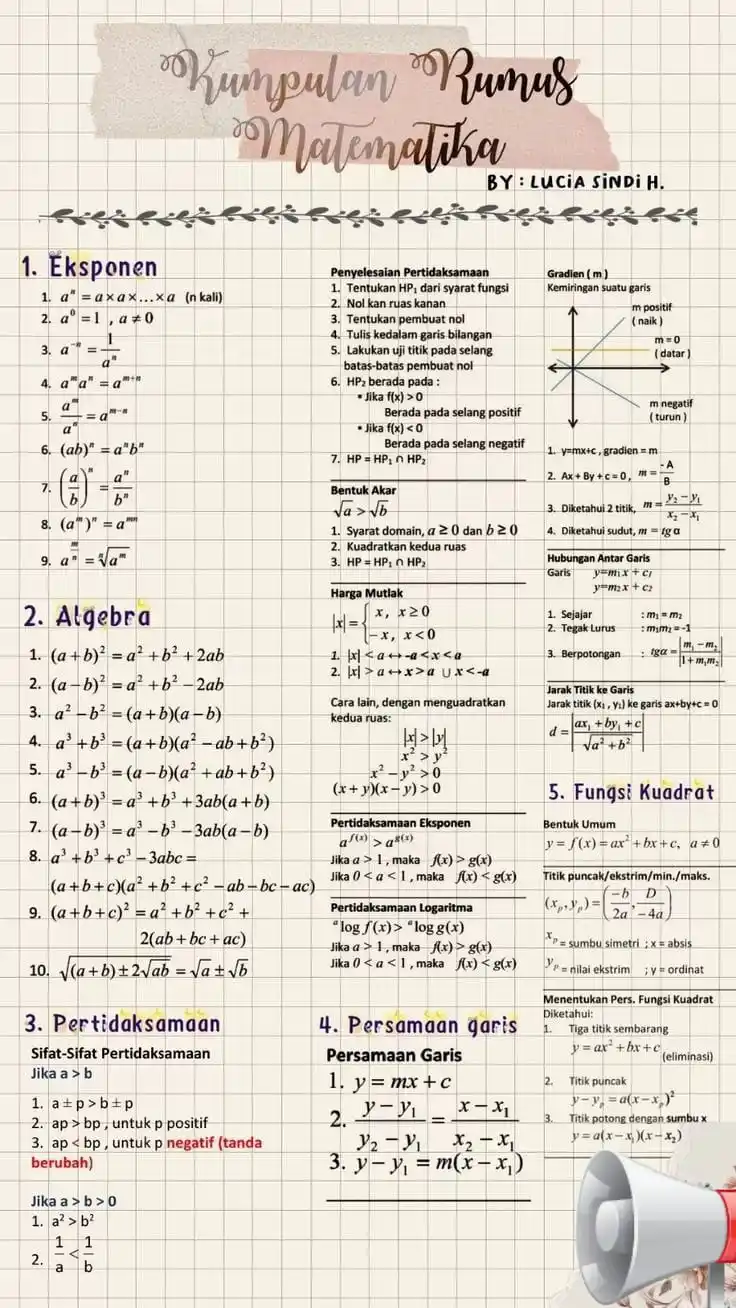 Kumpulan Rumus
Matematika
BY : LUCIA SINDI H.
1. Eksponen
1. aⁿ = a × a × ... × a (n kali)
2. a⁰ = 1 , a ≠ 0
3. a⁻ⁿ = 1/aⁿ
4. aᵐaⁿ = aᵐ⁺ⁿ
5. aᵐ/aⁿ = aᵐ⁻ⁿ
6. (ab)ⁿ = aⁿbⁿ
7. (a/b)ⁿ = aⁿ/bⁿ
8. (aᵐ)ⁿ = aᵐⁿ
9. a^(m/n) = ⁿ√(aᵐ)
2. Algebra
1. (a + b)² = a² + b² + 2ab
2. (a − b)² = a² + b² − 2ab
3. a² − b² = (a + b)(a − b)
4. a³ + b³ = (a + b)(a² − ab + b²)
5. a³ − b³ = (a − b)(a² + ab + b²)
6. (a + b)³ = a³ + b³ + 3ab(a + b)
7. (a − b)³ = a³ − b³ − 3ab(a − b)
8. a³ + b³ + c³ − 3abc =
(a + b + c)(a² + b² + c² − ab − bc − ac)
9. (a + b + c)² = a² + b² + c² +
2(ab + bc + ac)
10. √((a + b) ± 2√ab) = √a ± √b
3. Pertidaksamaan
Sifat-Sifat Pertidaksamaan
Jika a > b
1. a ± p > b ± p
2. ap > bp , untuk p positif
3. ap < bp , untuk p negatif (tanda
berubah)
Jika a > b > 0
1. a² > b²
2. 1/a < 1/b
Penyelesaian Pertidaksamaan
1. Tentukan HP₁ dari syarat fungsi
2. Nol kan ruas kanan
3. Tentukan pembuat nol
4. Tulis kedalam garis bilangan
5. Lakukan uji titik pada selang
batas-batas pembuat nol
6. HP₂ berada pada :
• Jika f(x) > 0
Berada pada selang positif
• Jika f(x) < 0
Berada pada selang negatif
7. HP = HP₁ ∩ HP₂
Bentuk Akar
√a > √b
1. Syarat domain, a ≥ 0 dan b ≥ 0
2. Kuadratkan kedua ruas
3. HP = HP₁ ∩ HP₂
Harga Mutlak
|x| = { x, x ≥ 0
−x, x < 0
1. |x| < a ↔ -a < x < a
2. |x| > a ↔ x > a ∪ x < -a
Cara lain, dengan menguadratkan
kedua ruas:
|x| > |y|
x² > y²
x² − y² > 0
(x + y)(x − y) > 0
Pertidaksamaan Eksponen
a^f(x) > a^g(x)
Jika a > 1 , maka f(x) > g(x)
Jika 0 < a < 1 , maka f(x) < g(x)
Pertidaksamaan Logaritma
ᵃlog f(x) > ᵃlog g(x)
Jika a > 1 , maka f(x) > g(x)
Jika 0 < a < 1 , maka f(x) < g(x)
4. Persamaan garis
Persamaan Garis
1. y = mx + c
2. (y − y₁)/(y₂ − y₁) = (x − x₁)/(x₂ − x₁)
3. y − y₁ = m(x − x₁)
Gradien ( m )
Kemiringan suatu garis
m positif
( naik )
m = 0
( datar )
m negatif
( turun )
1. y=mx+c , gradien = m
2. Ax + By + c = 0 , m = -A/B
3. Diketahui 2 titik, m = (y₂ − y₁)/(x₂ − x₁)
4. Diketahui sudut, m = tg α
Hubungan Antar Garis
Garis y=m₁x + c₁
y=m₂x + c₂
1. Sejajar : m₁ = m₂
2. Tegak Lurus : m₁m₂ = -1
3. Berpotongan : tgα = |(m₁ − m₂)/(1 + m₁m₂)|
Jarak Titik ke Garis
Jarak titik (x₁ , y₁) ke garis ax+by+c = 0
d = |(ax₁ + by₁ + c)/√(a² + b²)|
5. Fungsi Kuadrat
Bentuk Umum
y = f(x) = ax² + bx + c, a ≠ 0
Titik puncak/ekstrim/min./maks.
(xₚ, yₚ) = (−b/2a, D/−4a)
xₚ = sumbu simetri ; x = absis
yₚ = nilai ekstrim ; y = ordinat
Menentukan Pers. Fungsi Kuadrat
Diketahui:
1. Tiga titik sembarang
y = ax² + bx + c (eliminasi)
2. Titik puncak
y − yₚ = a(x − xₚ)²
3. Titik potong dengan sumbu x
y = a(x − x₁)(x − x₂)